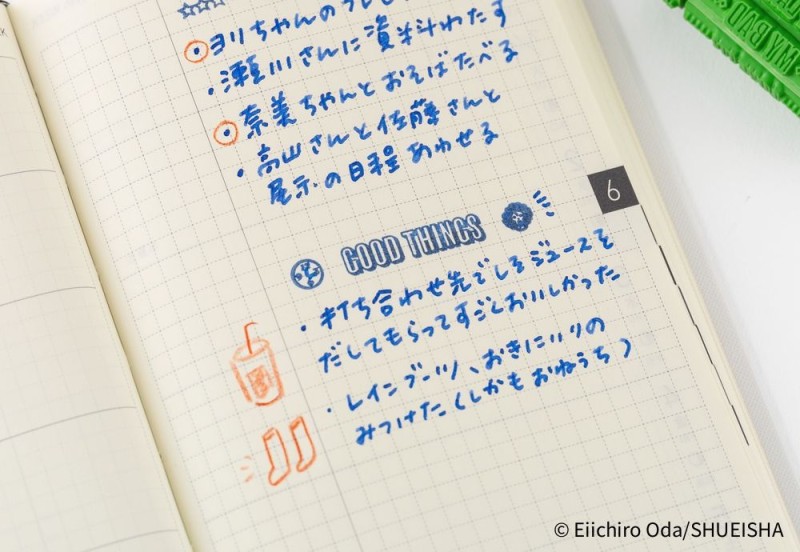 ヨリちゃんのプレ
・瀬川さんに資料わたす
奈美ちゃんとおそばたべる
・高山さんと佐藤さんと
展示の日程あわせる
6
GOOD THINGS
・打ち合わせ先でしそジュースを
だしてもらってすごくおいしかった
・レインブーツ、おきにいりの
みつけた(しかもおねうち)
© Eiichiro Oda/SHUEISHA